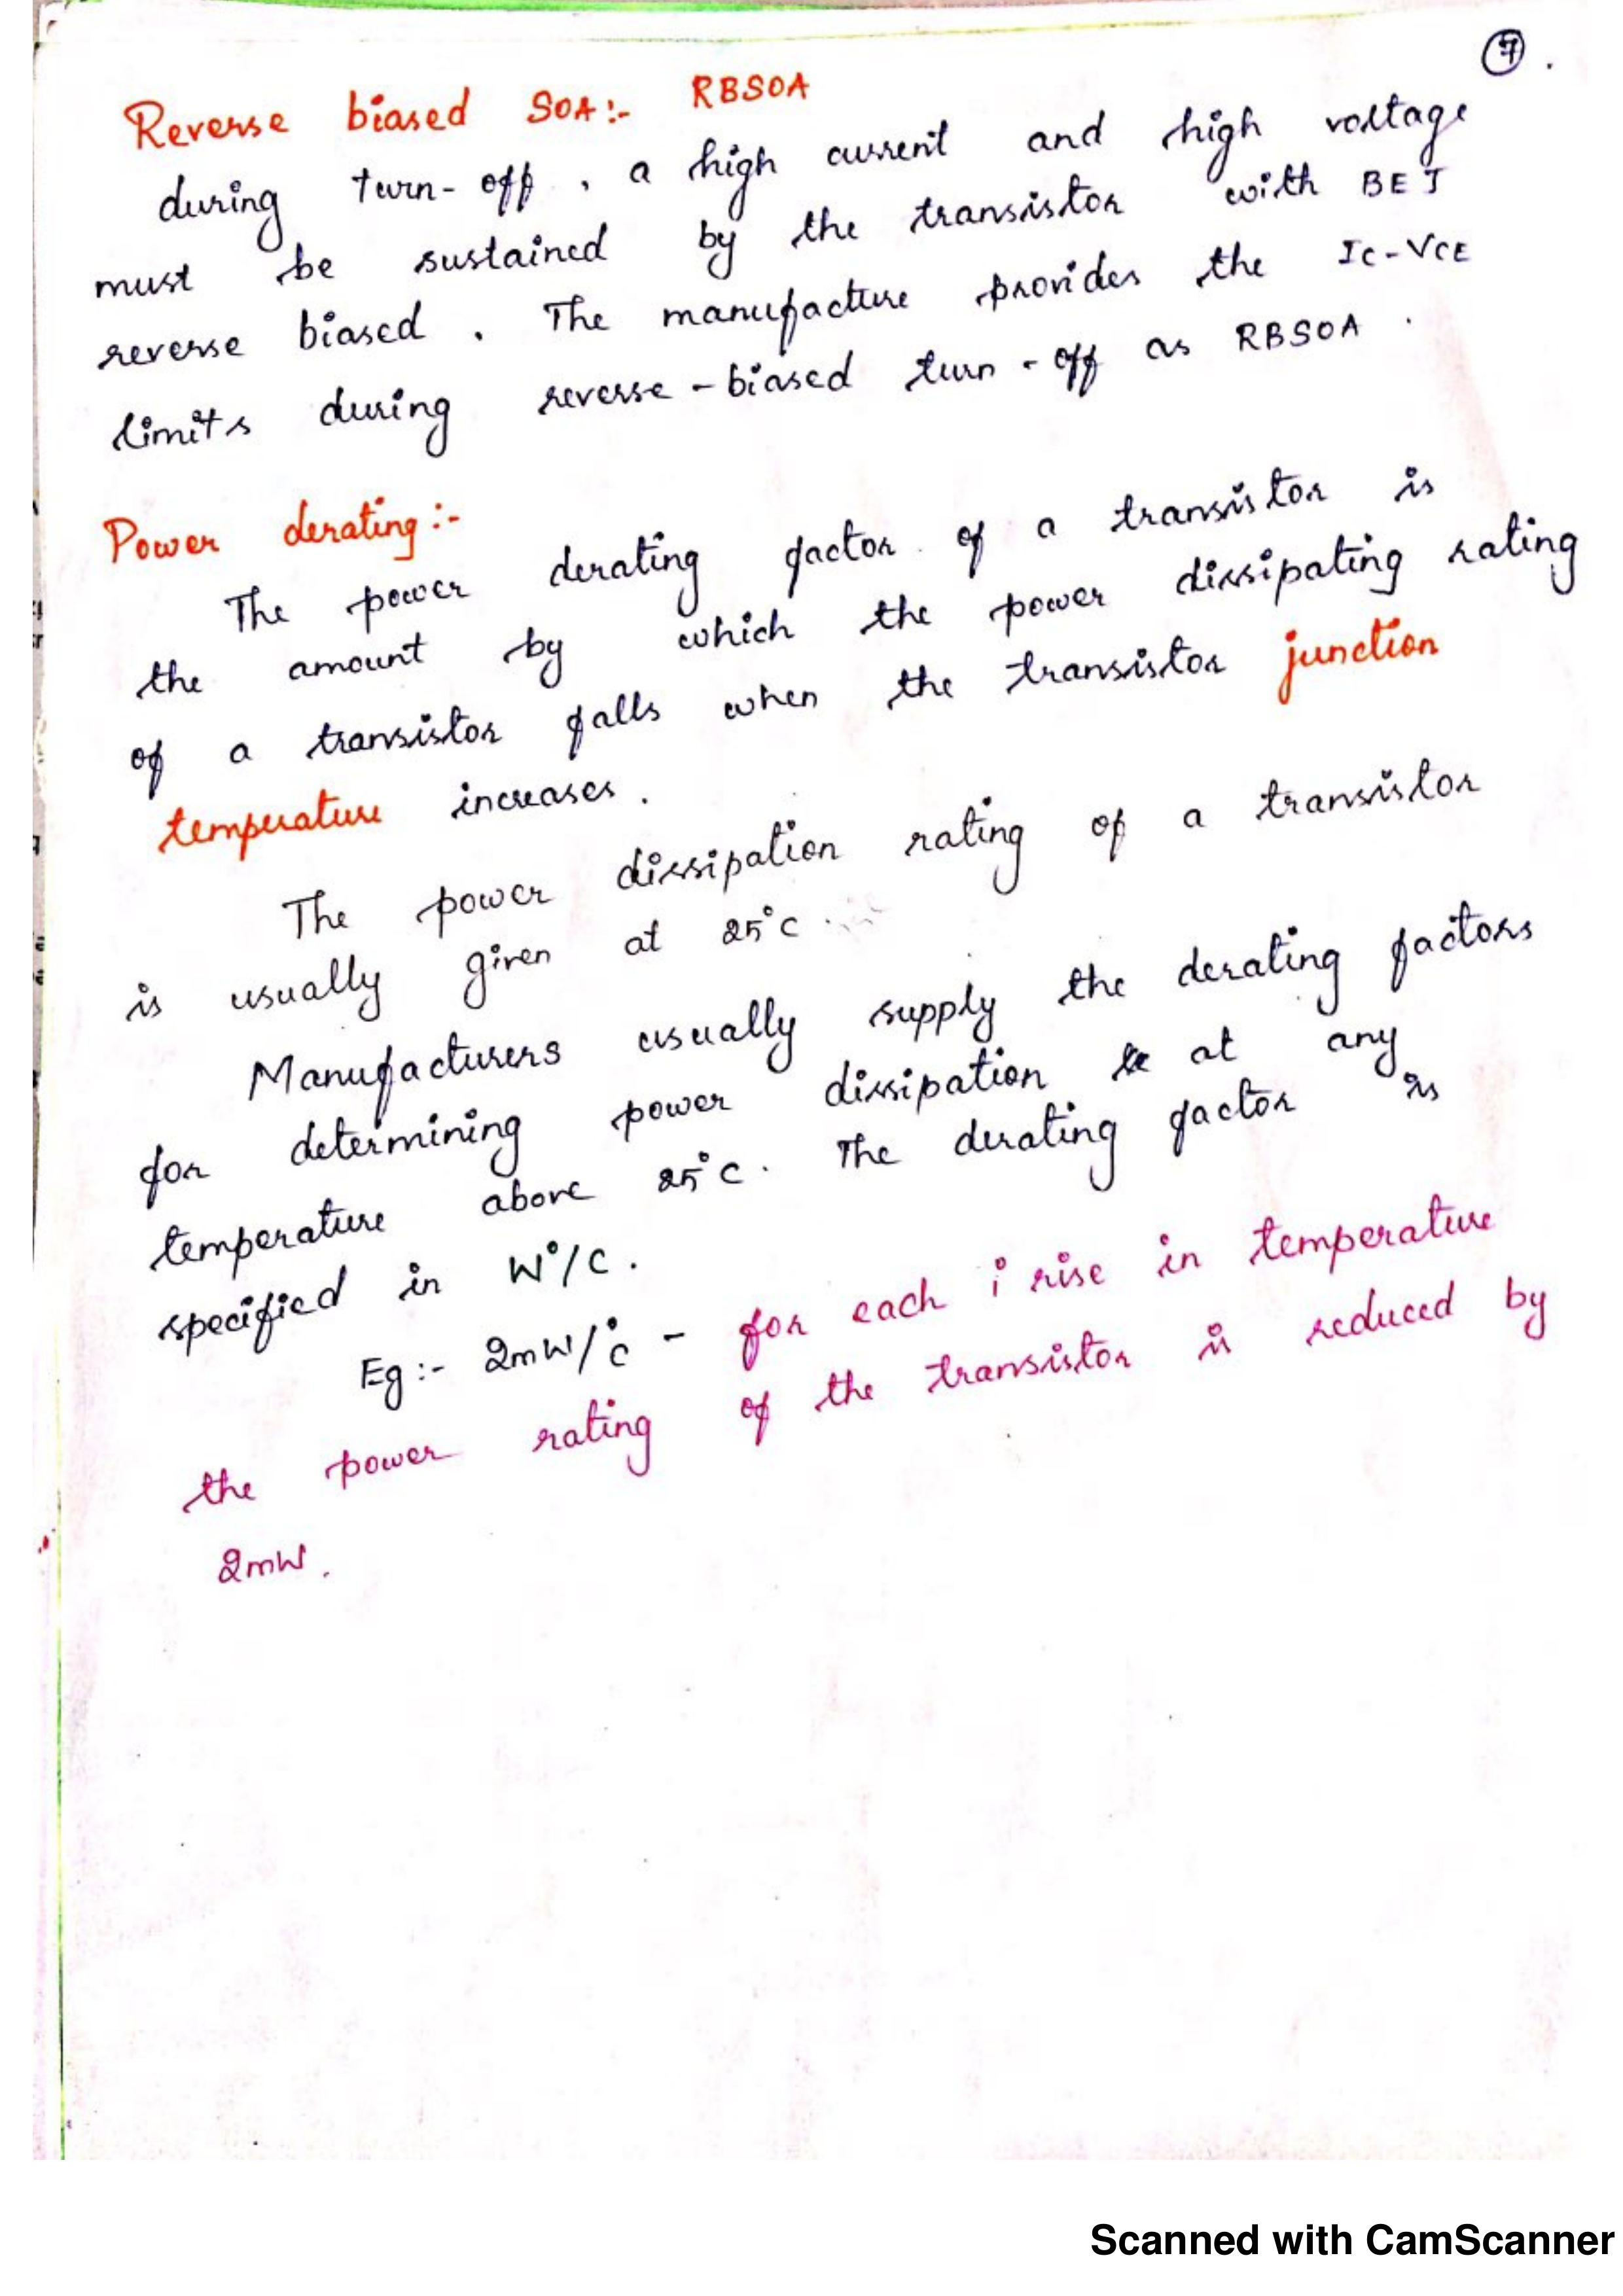 7.
Reverse biased SOA:- RBSOA
during turn-off, a high current and high voltage
must be sustained by the transistor with BEJ
reverse biased. The manufacture provides the IC-VCE
limits during reverse-biased turn-off as RBSOA.
Power derating:-
The power derating factor of a transistor is
the amount by which the power dissipating rating
of a transistor falls when the transistor junction
temperature increases.
The power dissipation rating of a transistor
is usually given at 25°C
Manufacturers usually supply the derating factors
for determining power dissipation at any
temperature above 25°C. The derating factor is
specified in W°/C.
Eg:- 2mW/°C - for each i rise in temperature
the power rating of the transistor is reduced by
2mW.
Scanned with CamScanner